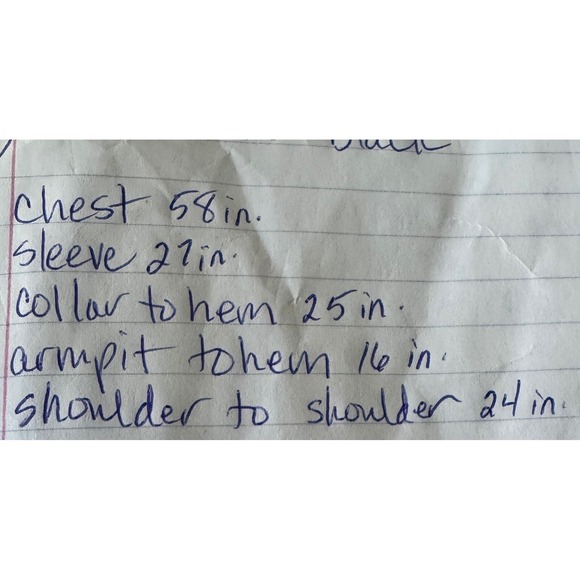 chest 58 in.
sleeve 27 in.
collar to hem 25 in.
armpit to hem 16 in.
shoulder to shoulder 24 in.